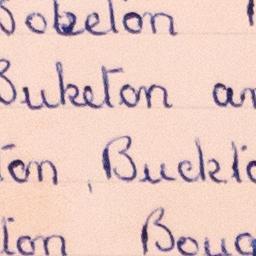 Bobelon
Buketon an
ton, Buckto
ton Boug